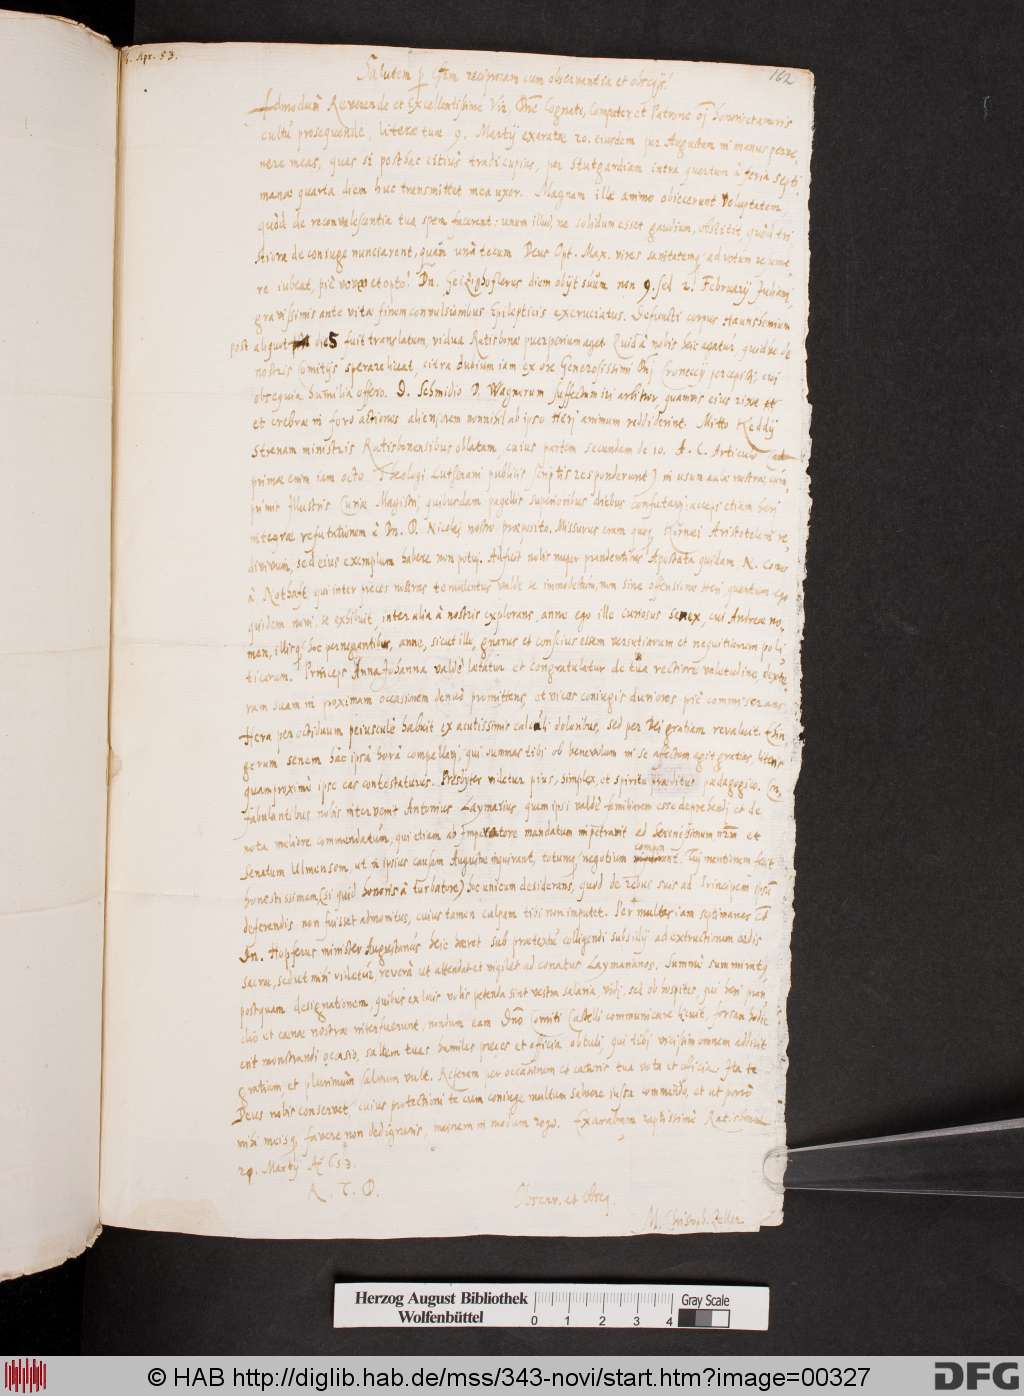 Apr. 53.
162
Salutem reciprocam cum observantia et obseq.
Admodum Reverende et Excellentissime Vir, Dne Cognate, Compater et Patrone honoris et amoris
cultu prosequende, literae tuae 9. Martij exaratae 20. eiusdem per Augustam in manus perve,
nere meas, quas si posthac citius tradi cupias, per Stutgardiam intra quartum à feria septi,
manae quarta diem huc transmittet mea uxor. Magnam illae animo obiecerunt voluptatem
quòd de reconvalescentia tua spem facerent: unum illud, ne solidum esset gaudium, obstitit, quòd tri
stiora de coniuge nunciarent, quàm unà tecum Deus Opt. Max. vires sanitatemq ad votum resume,
re iubeat, piè voveo et opto. Dn. Geizighoflerus diem obijt suum non 9. sed 2. February Juliani,
gravissimis ante vitae finem convulsionibus Epilepticis excruciatus. Defuncti corpus Haunshemium
post aliquot dies fuit translatum, vidua Ratisbonae puerperium aget. Quid à nobis heic agatur, quidve de
nostris Comitijs sperare liceat, citra dubium iam ex ore Generosissimi Dnj Croneccij percepisti, cui
obsequia humilia offero. D. Schmidio D. Wagnerum suffectum iri arbitror, quamvis eius rixae
et crebrae in foro actiones alieniorem nonnihil ab ipso Herj animum reddiderint. Mitto Keddij
Strenam ministris Ratisbonensibus oblatam, cuius partem secundam de 10. A. C. Articulo
primae enim iam octo Theologi Lutherani publicis scriptis responderunt) in usum aulae nostrae
primis Illustris Curiae Magistri, quibusdam pagellis superioribus diebus confutavi: accepi etiam heri
integrae refutationem à Dn. D. Nicolai nostro praeposito. Missurus eram quoq Aristotelem re,
divivum, sed eius exemplum habere non potui. Adfuit nobis nuper prandentibus Apostata quidam, N. Comes
à Nothaft qui inter preces nostras tomulentus valde se immodestum, non sine offensione Herj, quantum ego
quidem novi, se exhibuit, inter alia à nostris explorans, anne ego ille curiosus senex, cui Andreae no,
men, illisq hoc pernegantibus, anne, sicut ille, gnarus et conscius essem versutiarum et nequitiarum poli,
ticarum. Princeps Anna Johanna valde laetatur et congratulatur de tua rectiore valetudine, dexte,
ram suam in proximam occasionem denuò promittens, et vices coniugis duriores piè commiserans.
Hera per octiduum peiusculè habuit ex acutissimis calculi doloribus, sed per Dei gratiam revaluit. Ehin
gerum senem hâc ipsâ horâ compellavi, qui summas tibi ob benevolum in se affectum agit gratias, literis
quamproximè ipse eas contestaturus. Presbyter videtur pius, simplex, et spiritu praeditus paedagogico. Con,
fabulantibus nobis intervenit Antonius Laymarius, quem ipsi valdè familiarem esse deprehendi et de
nota meliore commendatum, qui etiam ab Imperatore mandatum impetravit ad Serenissimum nrm et
Senatum Ulmensem, ut in ipsius causam Augustae inquirant, totumq negotium compon. Tui mentionem fecit
honestissimam (si quid honoris à turbatore) hoc unicum desiderans, quod de rebus suis ad Principem ipse
deferendis non fuisset admonitus, cuius tamen culpam tibi non imputet. Per multas iam septimanas
Dn. Hopferus minister Augustanus heic haeret sub praetextu colligendi subsidij ad extructionem aedis
sacrae, sed ut mihi videtur, reverà ut attendat et vigilet ad conatus Laymarianos. Summi
postquam designationem, quibus ex locis nobis petenda sint vestra salaria, vidi, sed ob hospites qui heri pran
dio et caenae nostrae interfuerunt, nondum eam Dno Comiti Castelli communicare licuit, forsan hodie
erit monstrandi ocasio, saltem tuas humiles preces et officia obtuli, qui tibi vicissim omnem addixit
gratiam et plurimùm salvum vult. Referam per occasionem et caeteris tua vota et officia. Ita te
Deus nobis conservet, cuius protectioni te cum coniuge multum salvere iussa commendo, et ut porrò
mihi meisq favere non dedigneris, maiorem in modum rogo. Exaratum raptissimè Ratisbonae
29. Martij A. 653.
R. T. D.
Observ. et Obseq.
M. Christoph. Zeller.
Herzog August Bibliothek
Wolfenbüttel
0 1 2 3 4
Gray Scale
© HAB http://diglib.hab.de/mss/343-novi/start.htm?image=00327
DFG